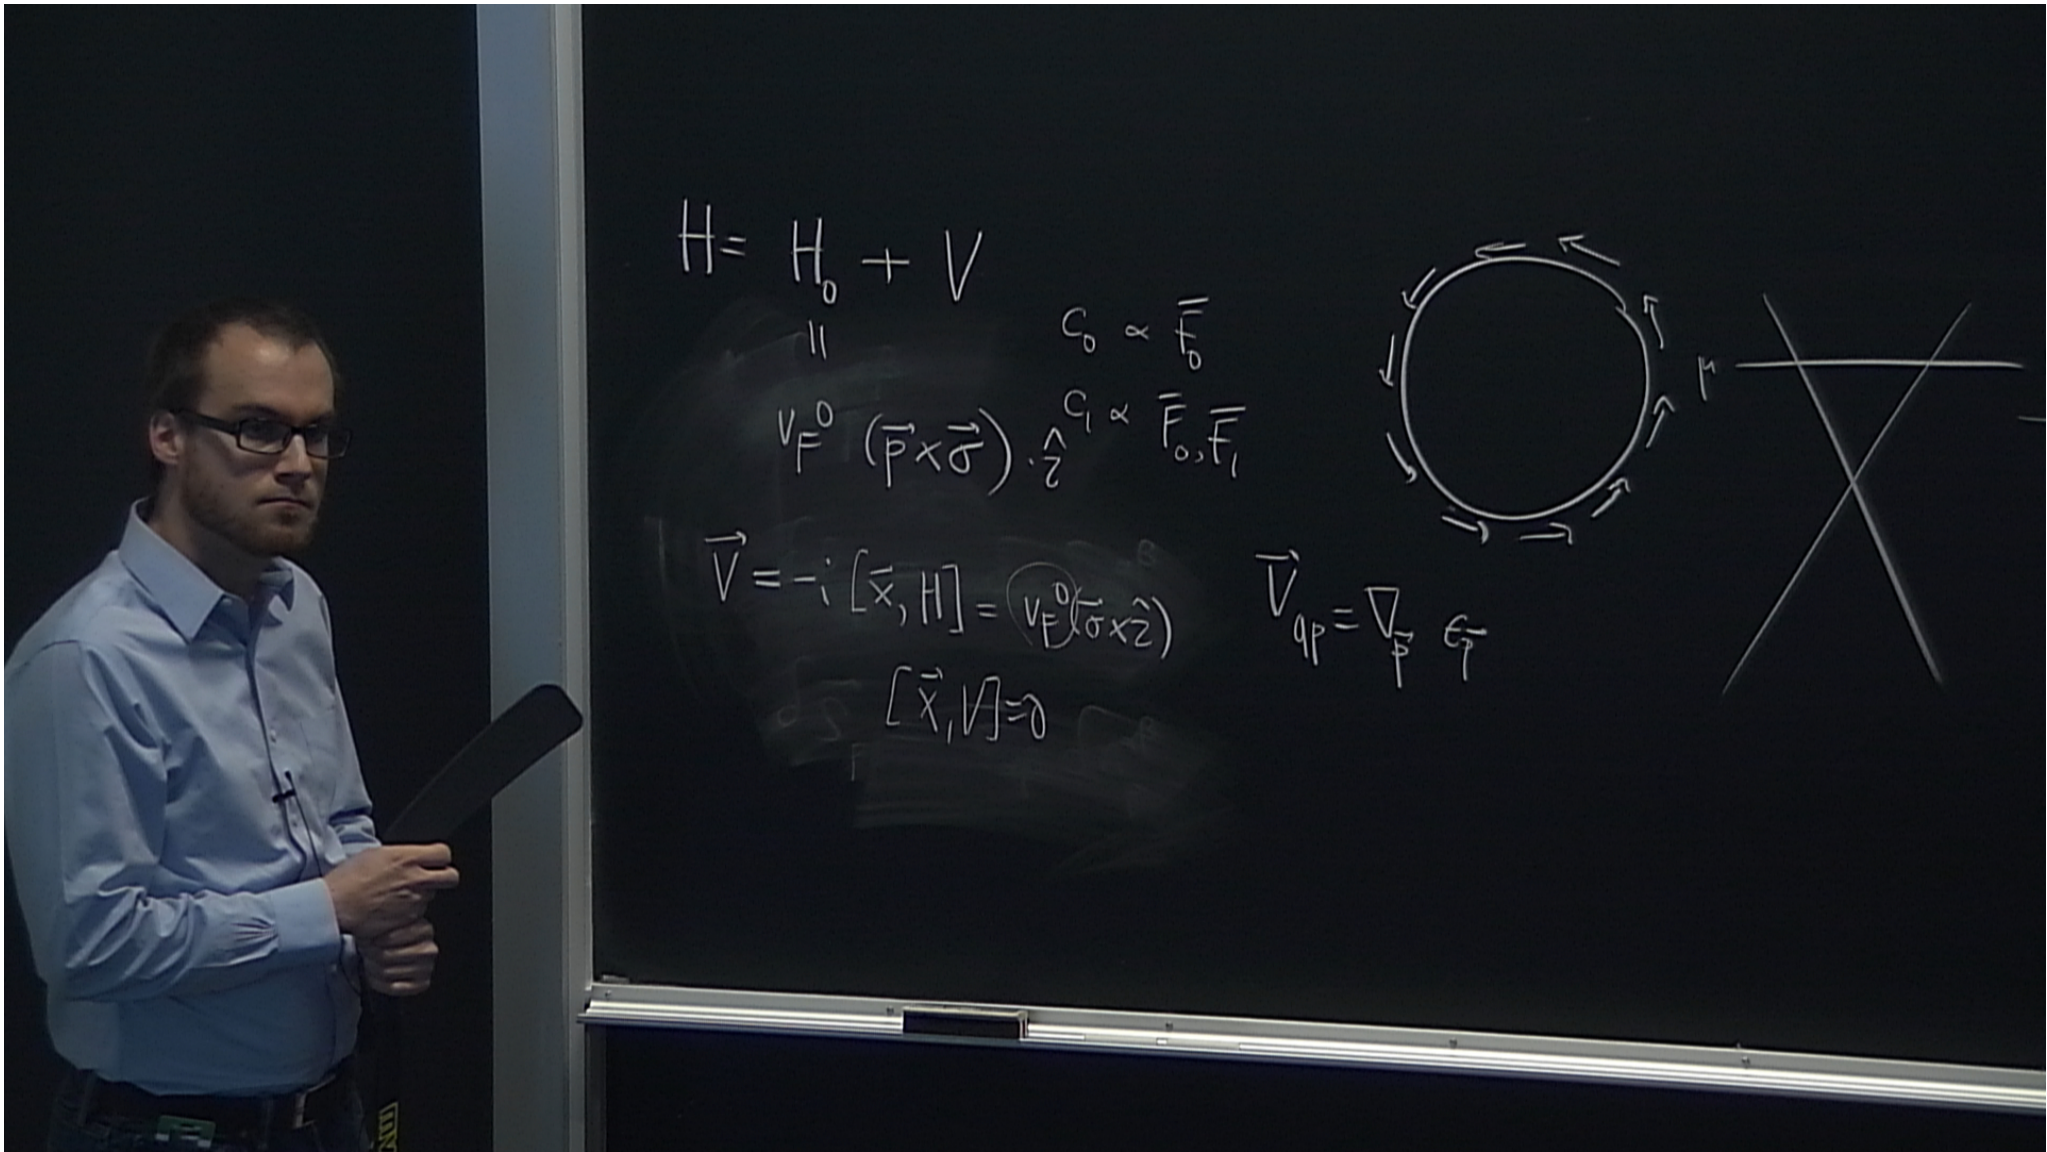 H = H₀ + V
||
v_F⁰ (p⃗ × σ⃗) · ẑ
C₀ ∝ F̄₀
C₁ ∝ F̄₀, F̄₁
V⃗ = -i [x⃗, H] = v_F⁰ (σ⃗ × ẑ)
[x⃗, V] = 0
V⃗_qp = ∇_p⃗ ε_p⃗
μ